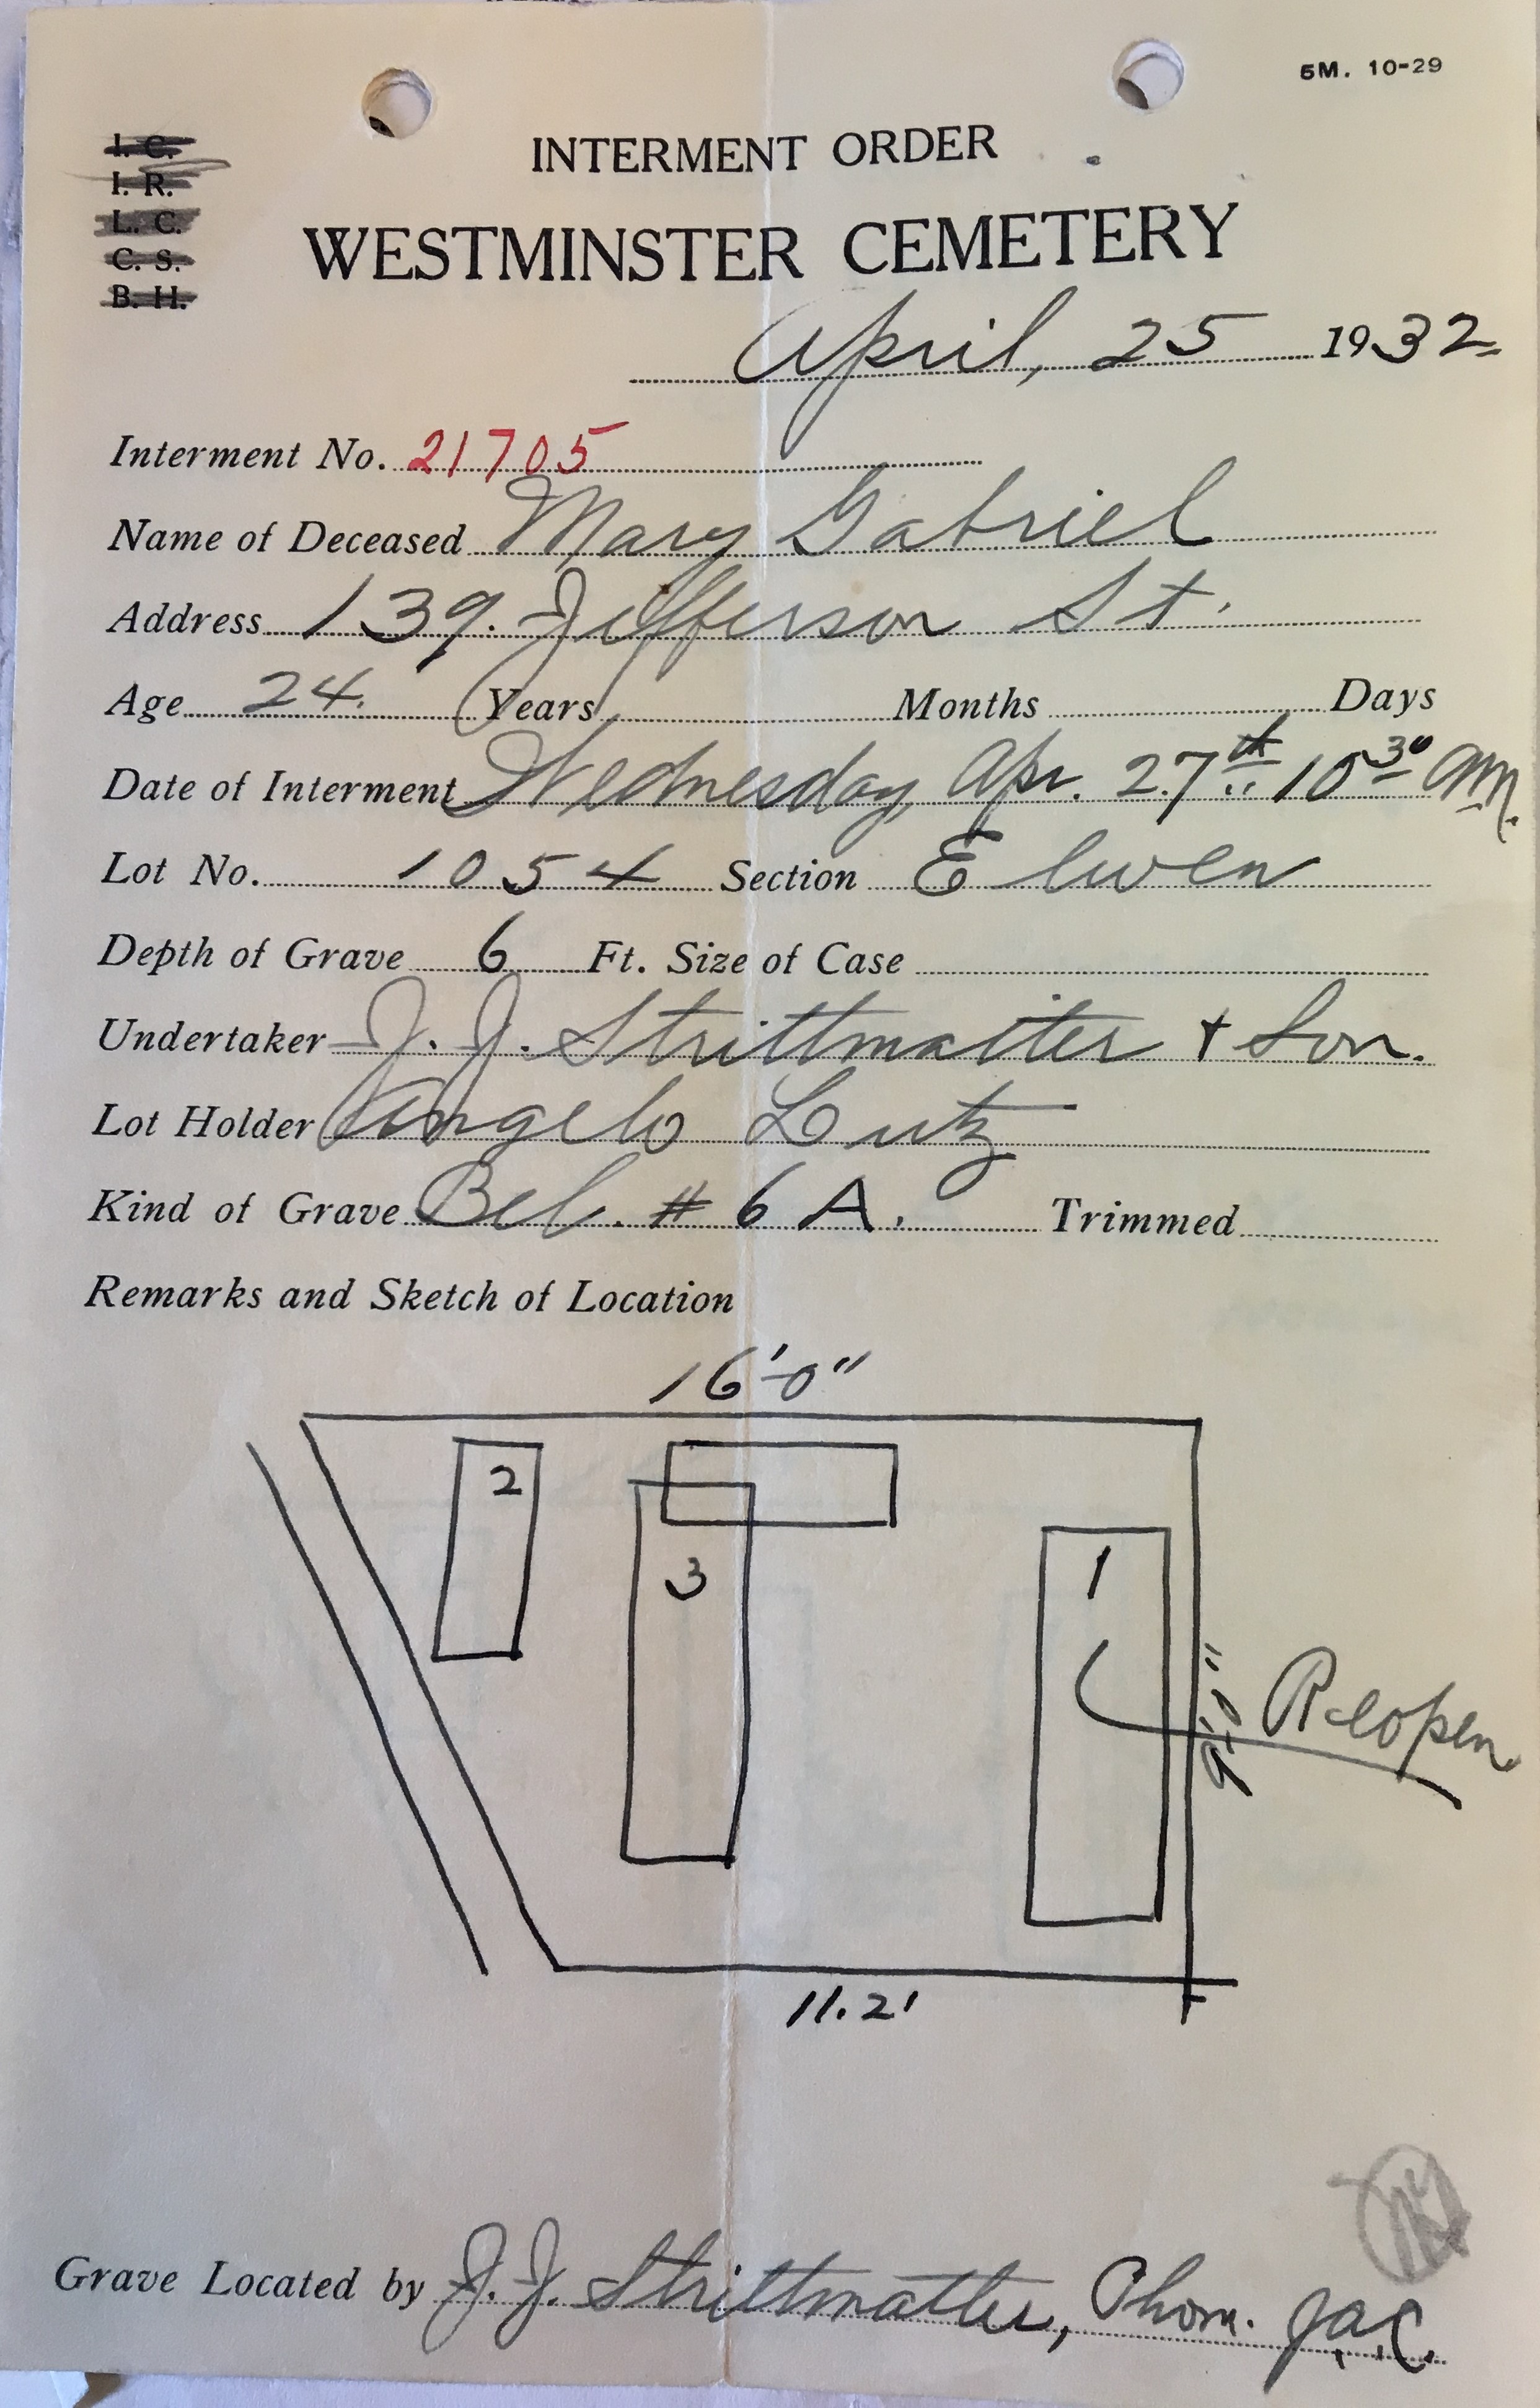 5M. 10-29
I. C.
I. R.
L. C.
C. S.
B. H.
INTERMENT ORDER
WESTMINSTER CEMETERY
April, 25 1932
Interment No. 21705
Name of Deceased Mary Gabriel
Address 139. Jefferson St.
Age 24. Years Months Days
Date of Interment Wednesday, Apr. 27th 10 30 AM.
Lot No. 1054 Section Elwen
Depth of Grave 6 Ft. Size of Case
Undertaker J. J. Strittmatter + Son.
Lot Holder Angelo Lutz
Kind of Grave Bel. # 6 A. Trimmed
Remarks and Sketch of Location
16'-0"
2
3
1
9'-0" Reopen
11.2'
Grave Located by J. J. Strittmatter, Phom. J.A.C.